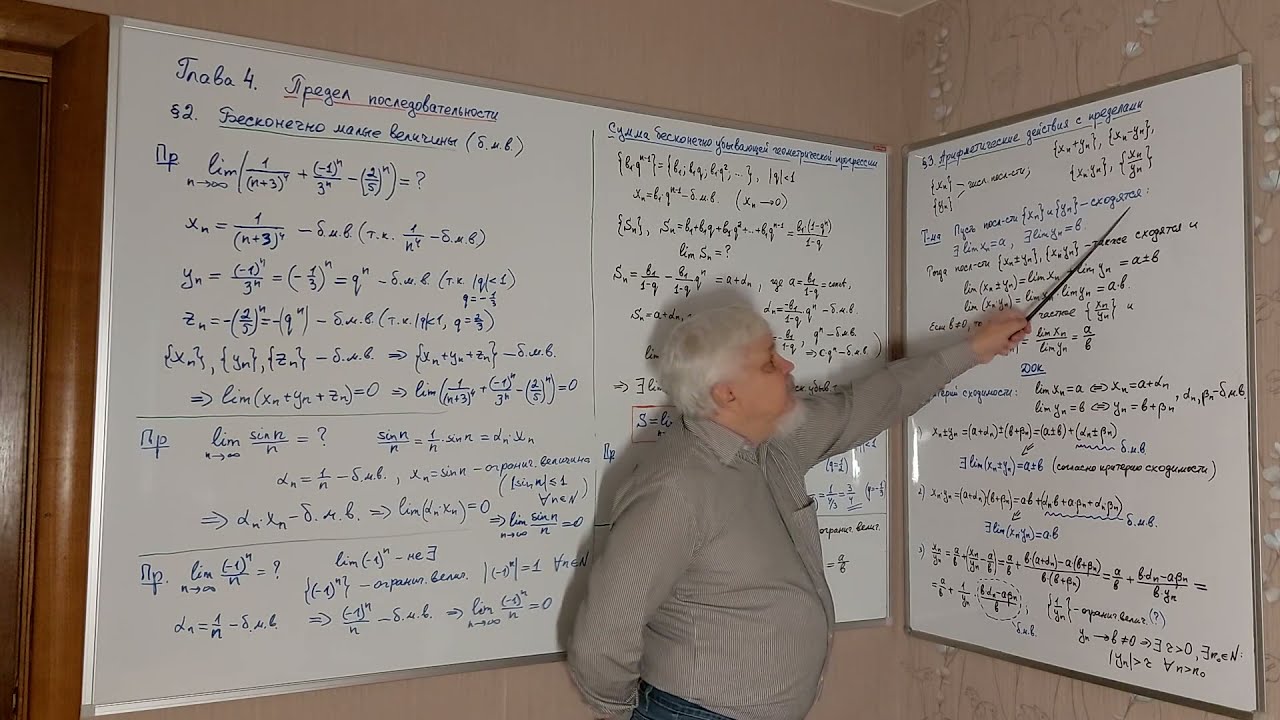 Глава 4. Предел последовательности
§2. Бесконечно малые величины (б.м.в)
Пр lim n→∞ (1/(n+3)⁴ + (-1)ⁿ/3ⁿ - (2/5)ⁿ) = ?
xₙ = 1/(n+3)⁴ - б.м.в. (т.к. 1/n⁴ - б.м.в)
yₙ = (-1)ⁿ/3ⁿ = (-1/3)ⁿ = qⁿ - б.м.в. (т.к. |q|<1)
q = -1/3
zₙ = -(2/5)ⁿ = -(qⁿ) - б.м.в. (т.к. |q|<1, q=2/5)
{xₙ}, {yₙ}, {zₙ} - б.м.в. ⇒ {xₙ+yₙ+zₙ} - б.м.в.
⇒ lim(xₙ+yₙ+zₙ)=0 ⇒ lim(1/(n+3)⁴ + (-1)ⁿ/3ⁿ - (2/5)ⁿ)=0
Пр lim n→∞ sin n/n = ? sin n/n = 1/n · sin n = αₙ·xₙ
αₙ = 1/n - б.м.в. , xₙ = sin n - огранич. величина
(|sin n| ≤ 1 ∀n∈N)
⇒ αₙ·xₙ - б.м.в. ⇒ lim(αₙ·xₙ)=0 ⇒ lim n→∞ sin n/n = 0
Пр. lim n→∞ (-1)ⁿ/n = ? lim(-1)ⁿ - не ∃
{(-1)ⁿ} - огранич. велич. |(-1)ⁿ| = 1 ∀n∈N
αₙ = 1/n - б.м.в. ⇒ (-1)ⁿ/n - б.м.в. ⇒ lim n→∞ (-1)ⁿ/n = 0
Сумма бесконечно убывающей геометрической прогрессии
{b₁qⁿ⁻¹} = {b₁; b₁q, b₁q², ...}, |q|<1
xₙ = b₁·qⁿ⁻¹ - б.м.в. (xₙ→0)
{Sₙ}, Sₙ = b₁+b₁q+b₁q²+...+b₁qⁿ⁻¹ = b₁(1-qⁿ)/(1-q)
lim Sₙ = ?
Sₙ = b₁/(1-q) - b₁/(1-q) qⁿ = a+αₙ, где a = b₁/(1-q) = const,
αₙ = -b₁/(1-q) · qⁿ - б.м.в.
Sₙ = a+αₙ,
qⁿ - б.м.в.
⇒ c·qⁿ - б.м.в.)
lim
⇒ ∃ lim
убыв.
S = li
Пр
(q=1)
= 1/(4/3) = 3/4 (q=-1/3)
огранич. велич.
= a/b
§3. Арифметические действия с пределами
{xₙ}, {yₙ} - числ. посл-сти; {xₙ+yₙ}, {xₙ-yₙ},
{xₙyₙ}, {xₙ/yₙ}
Т-ма Пусть посл-сти {xₙ} и {yₙ} - сходятся:
∃ lim xₙ = a, ∃ lim yₙ = b.
Тогда посл-сти {xₙ±yₙ}, {xₙ·yₙ} - также сходятся и
lim(xₙ±yₙ) = lim xₙ lim yₙ = a±b
lim(xₙ·yₙ) = lim yₙ = a·b.
Если b≠0, то частное {xₙ/yₙ} и
= lim xₙ/lim yₙ = a/b
Док
сходимости: lim xₙ = a ⇔ xₙ = a+αₙ
lim yₙ = b ⇔ yₙ = b+βₙ , αₙ, βₙ - б.м.в.
xₙ±yₙ = (a+αₙ)±(b+βₙ) = (a±b)+(αₙ±βₙ)
б.м.в.
∃ lim(xₙ±yₙ) = a±b (согласно критерию сходимости)
2) xₙ·yₙ = (a+αₙ)(b+βₙ) = ab+(αₙb+aβₙ+αₙβₙ)
б.м.в.
∃ lim(xₙyₙ) = a·b
3) xₙ/yₙ = a/b + (xₙ/yₙ - a/b) = a/b + (b·(a+αₙ)-a(b+βₙ))/(b·(b+βₙ)) = a/b + (b·αₙ-aβₙ)/(b·yₙ) =
= a/b + 1/yₙ · (b·αₙ-aβₙ)/b ; {1/yₙ} - огранич. велич. (?)
б.м.в.
yₙ → b≠0 ⇒ ∃ r>0, ∃ n₀∈N:
|yₙ|>r ∀n>n₀